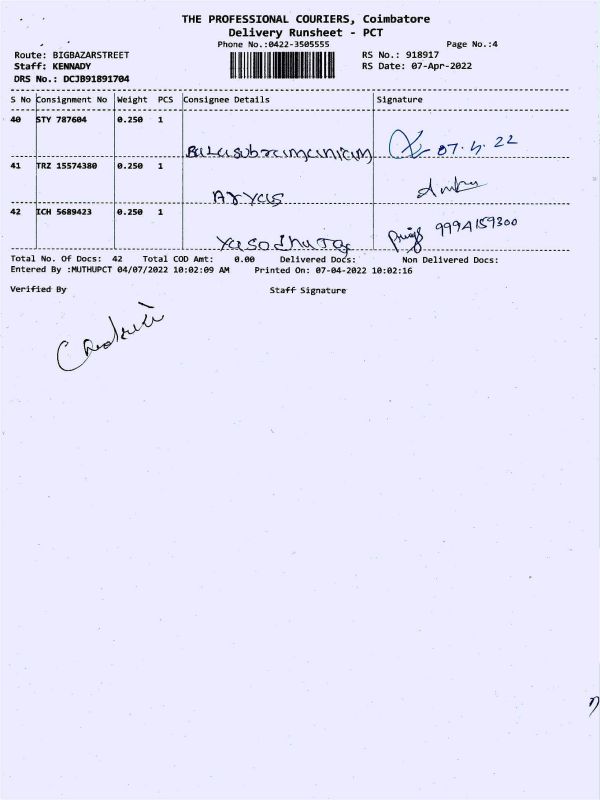 THE PROFESSIONAL COURIERS, Coimbatore
Delivery Runsheet - PCT
Phone No.:0422-3505555 Page No.:4
Route: BIGBAZARSTREET RS No.: 918917
Staff: KENNADY RS Date: 07-Apr-2022
DRS No.: DCJB91891704
S No Consignment No Weight PCS Consignee Details Signature
40 STY 787604 0.250 1
Balasubramaniam 07.4.22
41 TRZ 15574380 0.250 1
Aryas
42 ICH 5689423 0.250 1
Yasodhu Raj 9994159300
Total No. Of Docs: 42 Total COD Amt: 0.00 Delivered Docs: Non Delivered Docs:
Entered By :MUTHUPCT 04/07/2022 10:02:09 AM Printed On: 07-04-2022 10:02:16
Verified By Staff Signature